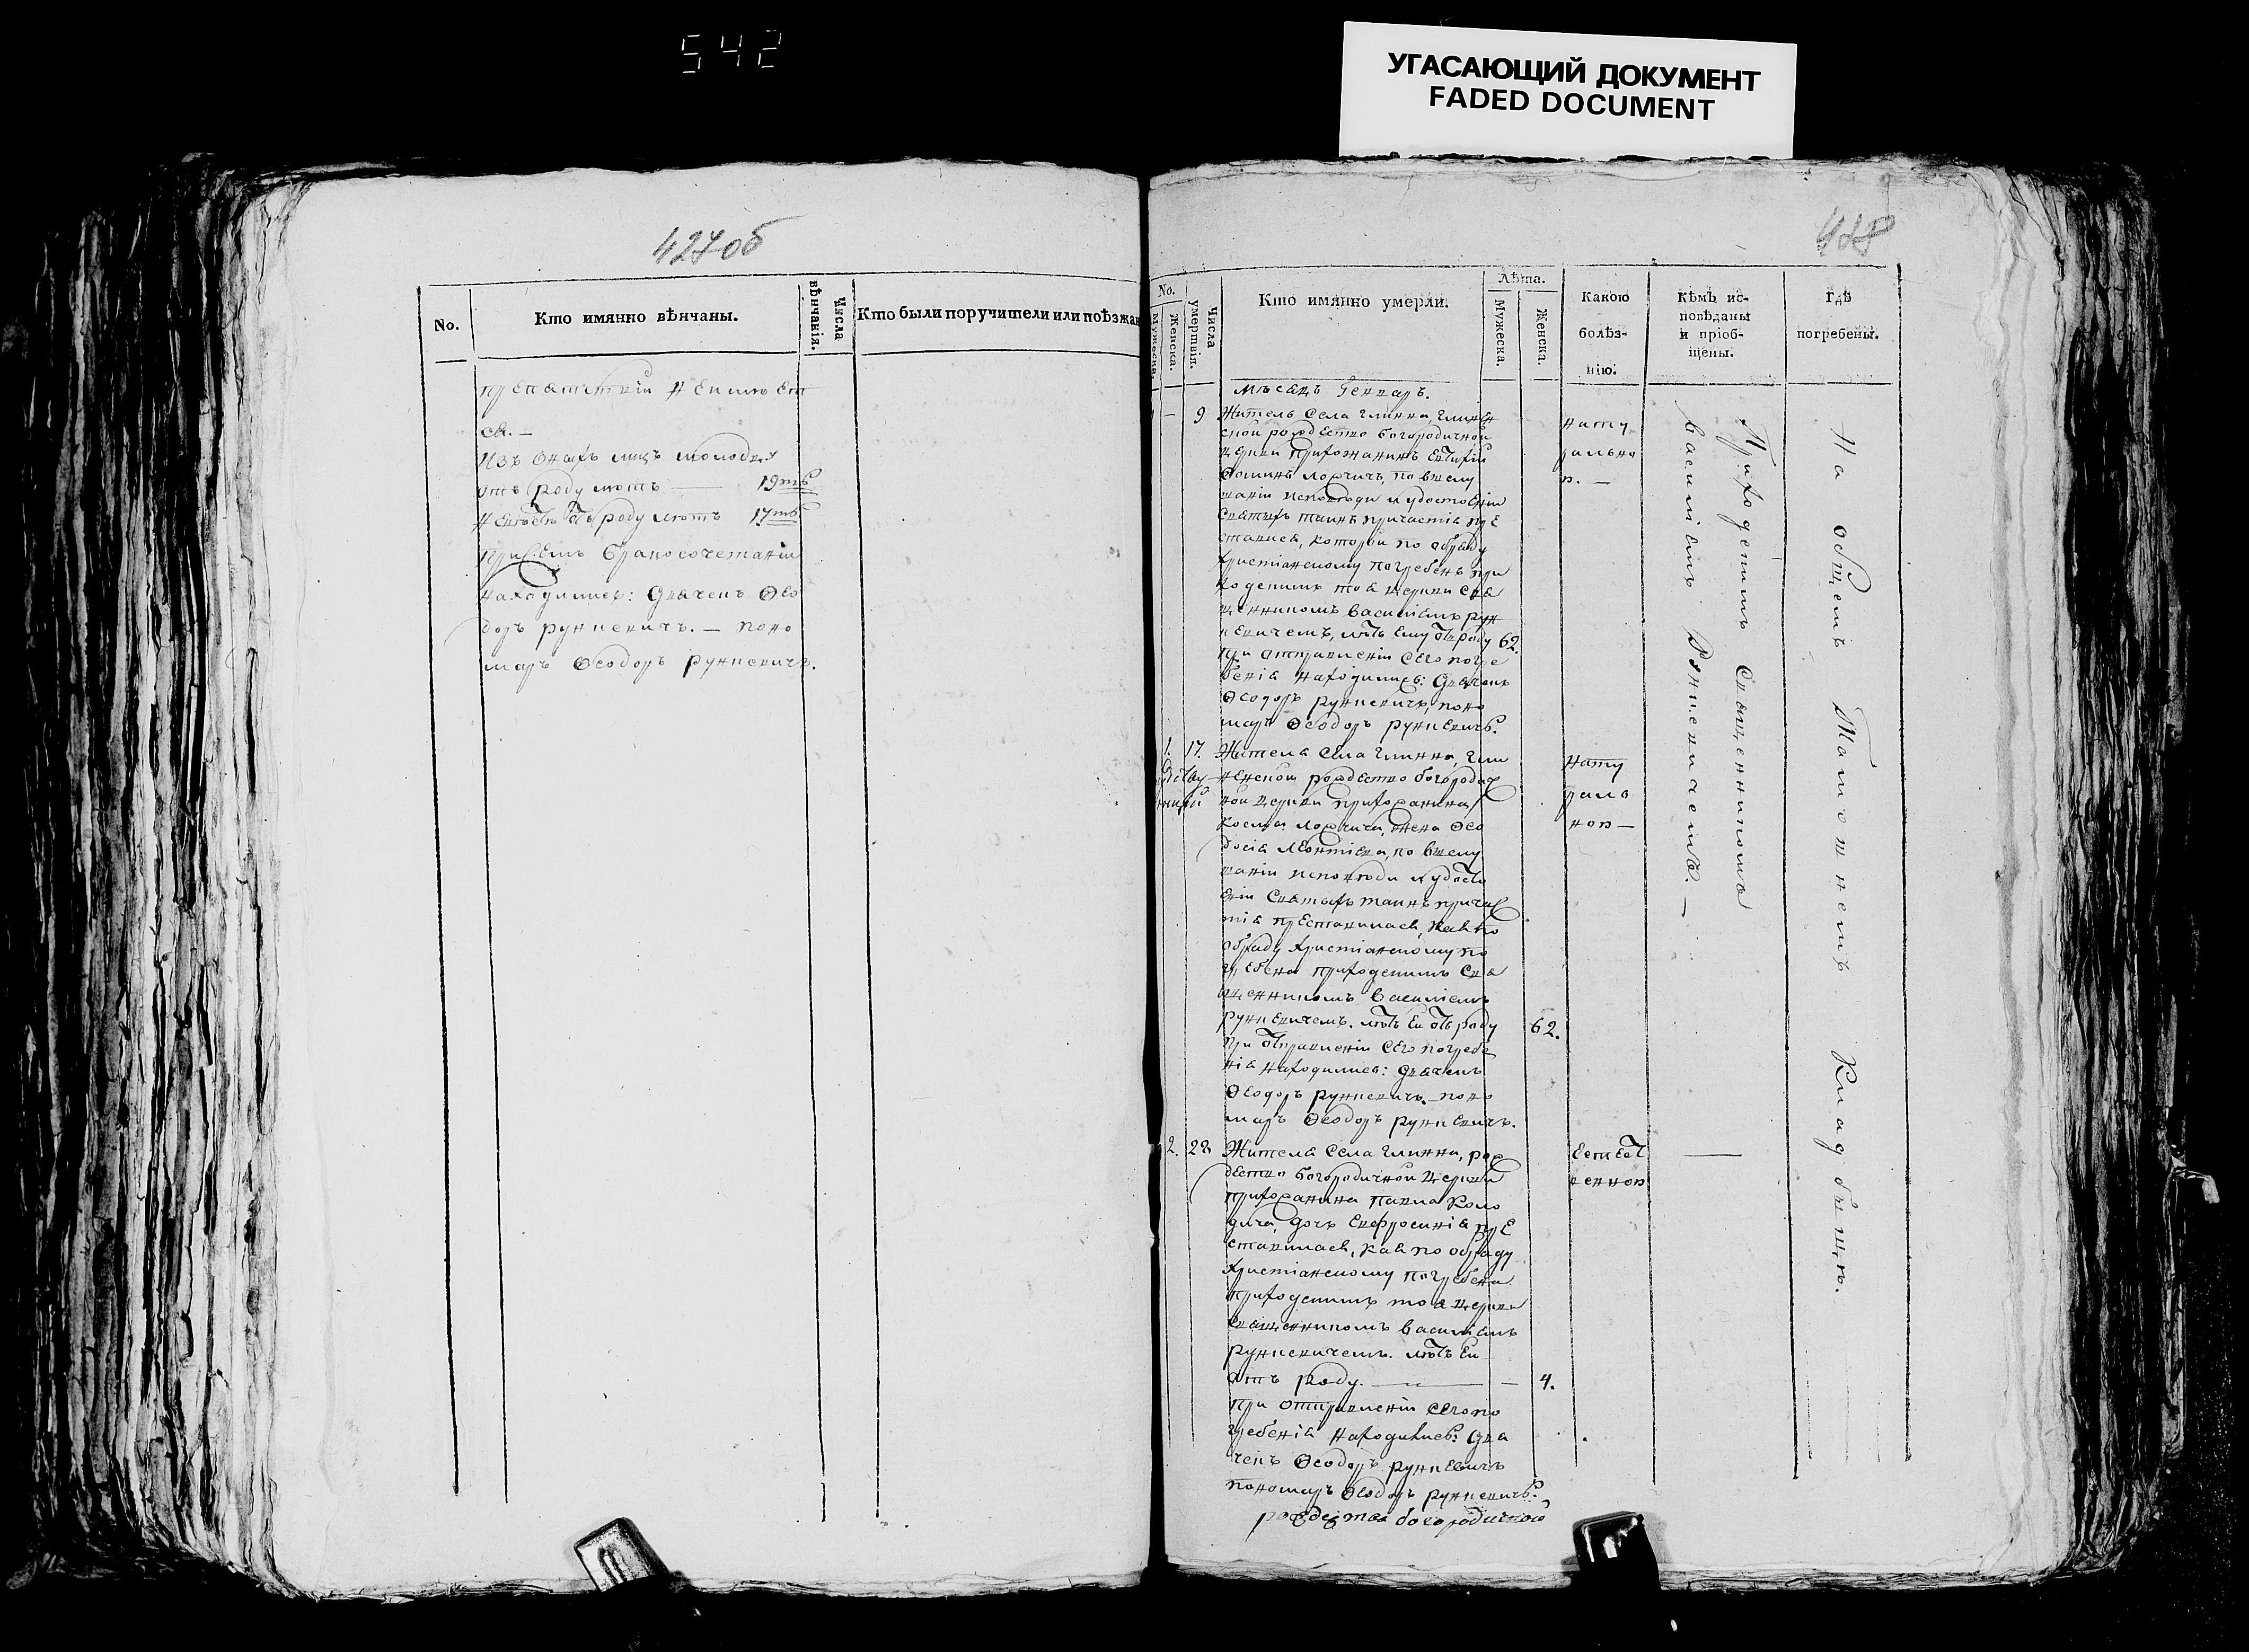 542
УГАСАЮЩИЙ ДОКУМЕНТ
FADED DOCUMENT
427об
428
No.
Кто имянно вѣнчаны.
Числа вѣнчанія.
Кто были поручители или поѣзжан
препятствіи неимѣет
ся. —
Изъ онахъ лицъ молодых
отъ роду лѣтъ — 19ть
невѣстѣ отъ роду лѣтъ 17ть
При семъ бракосочетаніи
находились: Дьячекъ Ѳео
доръ Рункевичъ. — Поно
марь Ѳеодоръ Рункевичъ.
No.
Мужеска.
Женска.
Числа умертвія.
Кто имянно умерли.
Лѣта.
Мужеска.
Женска.
Какою
болѣз-
нію.
Кѣмъ ис-
повѣданы
и пріоб-
щены.
Гдѣ
погребены.
мѣсяцъ Генварь.
— 9 Житель Села Глинна, Глинен
ской рождество богородичной
церкви прихожанинъ
по выслу
шаніи исповѣди и удостоѣніи
Святыхъ таинъ причастія пре
ставися, которой по обряду
Христіанскому погребенъ при
ходскимъ тоя церкви Свя
щенникомъ Василіемъ Рун
кевичемъ, лѣтъ ему отъ роду 62.
при отправленіи сего погре
бенія находились: Дьячекъ
Ѳеодоръ Рункевичъ, поно
марь Ѳеодоръ Рункевичъ.
нату
рально
1. 17. Жителя Села Глинна, Гли
ненской рождество богородич
ной церкви прихожанина
жена Ѳео
досія Леонтіева, по выслу
шаніи исповѣди и удосто
еніи Святыхъ таинъ причас
тія преставилася, кая по
обряду Христіанскому по
гребена приходскимъ Свя
щенникомъ Василіемъ
Рункевичемъ. лѣтъ ей отъ роду 62.
при отправленіи сего погребе
нія находились: Дьячекъ
Ѳеодоръ Рункевичъ — поно
марь Ѳеодоръ Рункевичъ.
нату
рало
2. 22 Жителя Села Глинна, рож
дество богородичной церкви
прихожанина Павла Коло
дича, дочь Евфросинія пре
ставилася, кая по обряду
Христіанскому погребена
приходскимъ тоя церкви
Священникомъ Василіемъ
Рункевичемъ. лѣтъ ей
отъ роду. — 4.
при отправленіи сего по
гребенія находились: Дья
чекъ Ѳеодоръ Рункевичъ
пономарь Ѳеодоръ Рункевичъ.
рождества богородичной
Приходскимъ Священникомъ
Василіемъ Рункевичемъ. —
На общемъ Тамошнемъ Кладбищѣ.